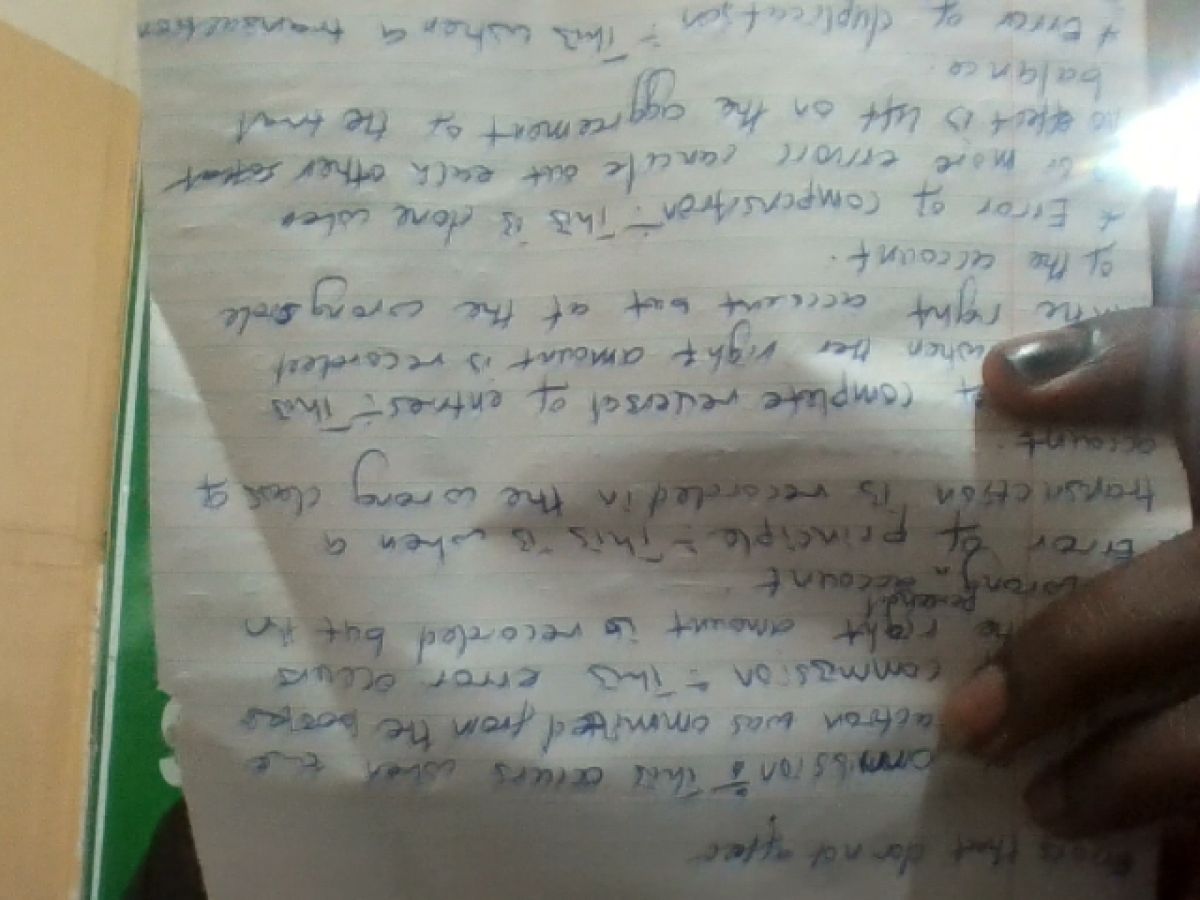 Errors that do not affec
ommission :- This occurs when the
action was ommitted from the books
commission :- This error occurs
the right amount is recorded but in
wrong personal account
+ Error of principle :- This is when a
transaction is recorded in the wrong class of
account.
of complete reversel of entries :- This
when her right amount is recorded
in the right account but at the wrong side
of the account.
+ Error of compensation :- This is done when
or more errors cancle out each other
no effect is left on the aggreement of the trial
balance.
+ Error of duplication :- This when a transaction